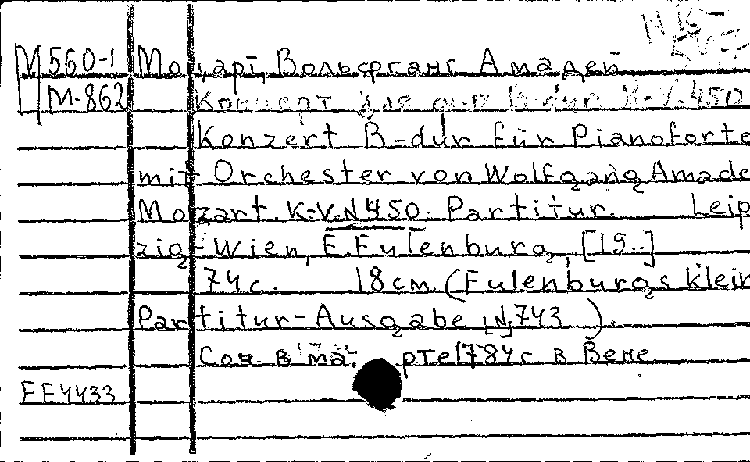 М560-1 Моцарт, Вольфганг Амадей
М-862 Концерт для фп B-dur K.V.450
Konzert B-dur für Pianoforte
mit Orchester von Wolfgang Amade
Mozart. K.V.N450. Partitur. Leip
zig-Wien, E.Eulenburg, [19..]
74с. 18см. (Eulenburgs klein
Partitur-Ausgabe, N,743).
Соч. в марте 1784г в Вене
ЕЕ4433